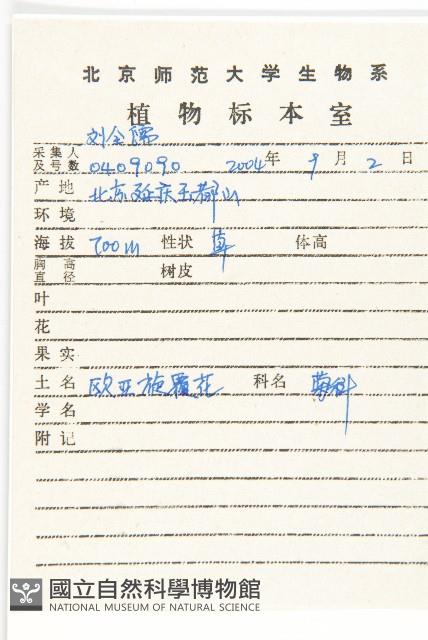 北京师范大学生物系
植物标本室
刘全儒
采集人及号数 0409090 2004年 9月 2日
产地 北京延庆玉都山
环境
海拔 700m 性状 草 体高
胸高直径 树皮
叶
花
果实
土名 欧亚旋覆花 科名 菊科
学名
附记
國立自然科學博物館
NATIONAL MUSEUM OF NATURAL SCIENCE